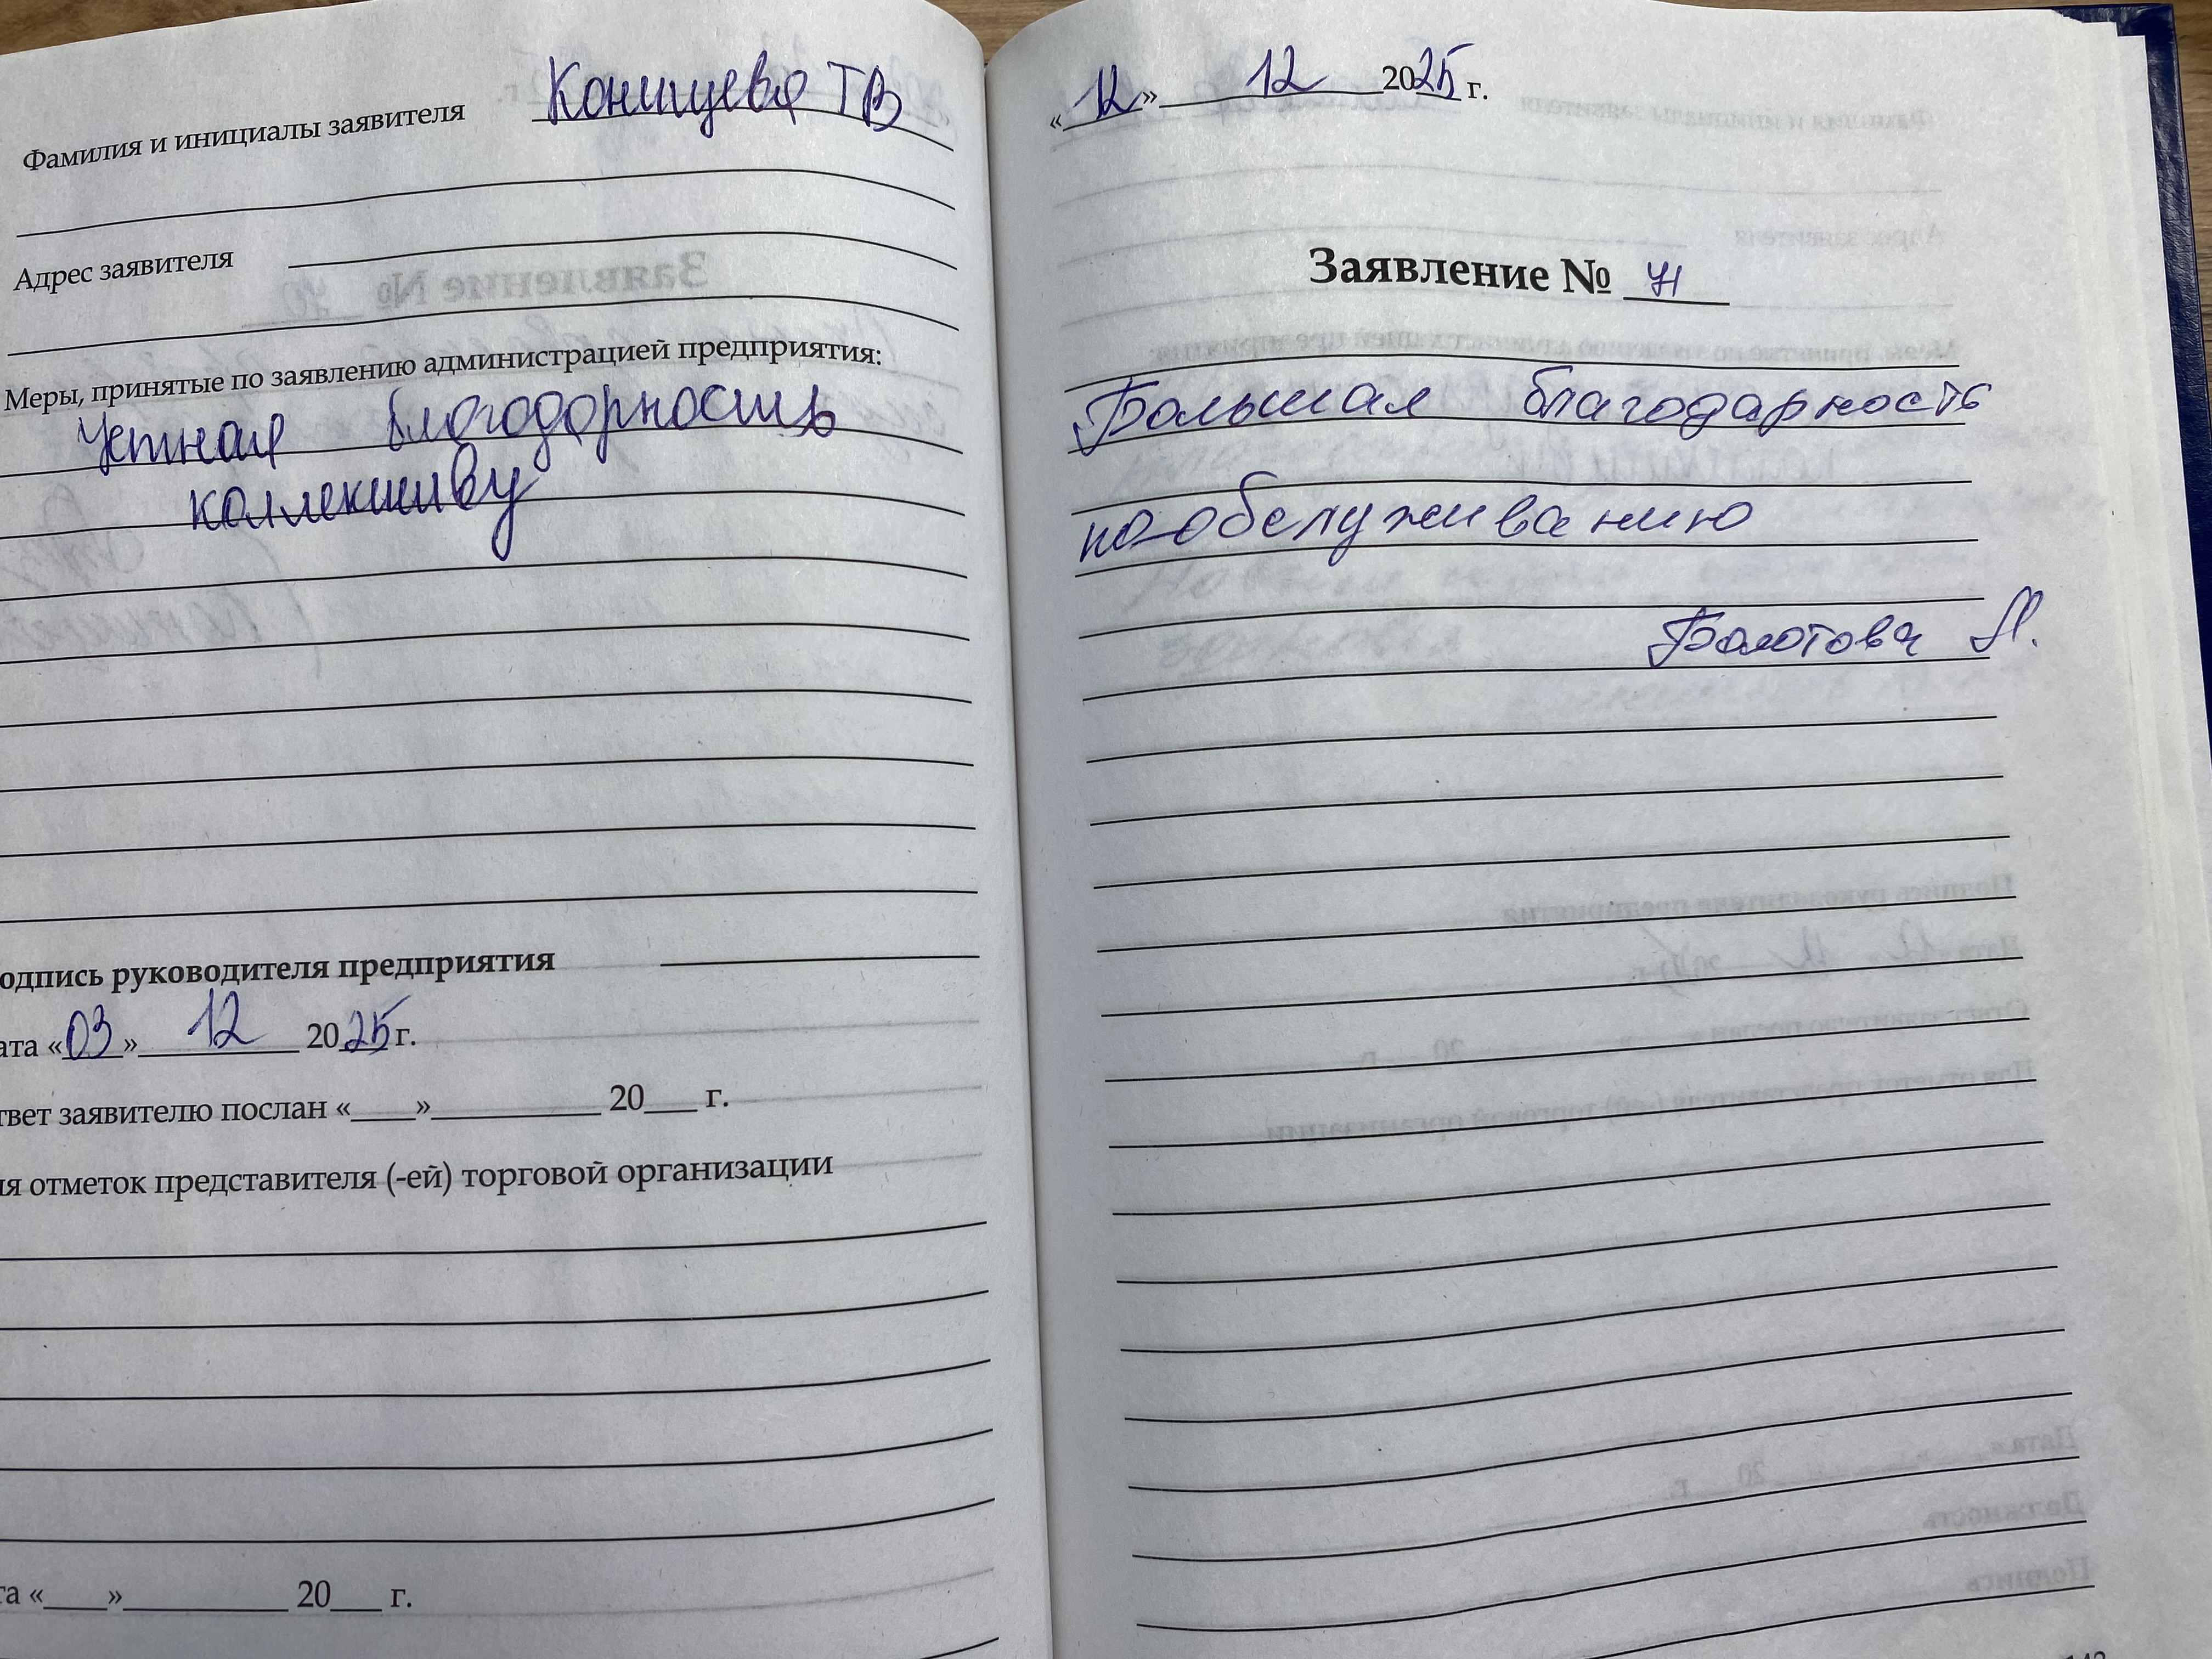 Фамилия и инициалы заявителя Конищева ТВ
Адрес заявителя
Меры, принятые по заявлению администрацией предприятия:
Устная благодарность
коллективу
одпись руководителя предприятия
ата «03» 12 2025 г.
твет заявителю послан «____»__________ 20___ г.
ля отметок представителя (-ей) торговой организации
та «____»__________ 20___ г.
«12» 12 2025 г.
Заявление № 71
Большая благодарность
по обслуживанию
Болотова Л.